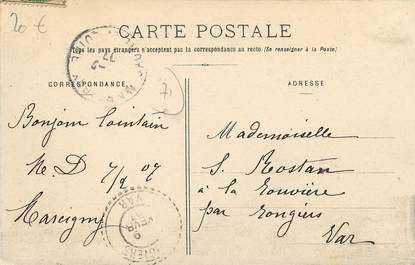 20 €
CARTE POSTALE
Tous les pays étrangers n'acceptent pas la correspondance au recto (Se renseigner à la Poste)
CORRESPONDANCE
ADRESSE
Bonjour lointain
M. D 7/2 07
Marcigny
Mademoiselle
S. Rostan
à la Rouvière
par Rougiers
Var
VAR